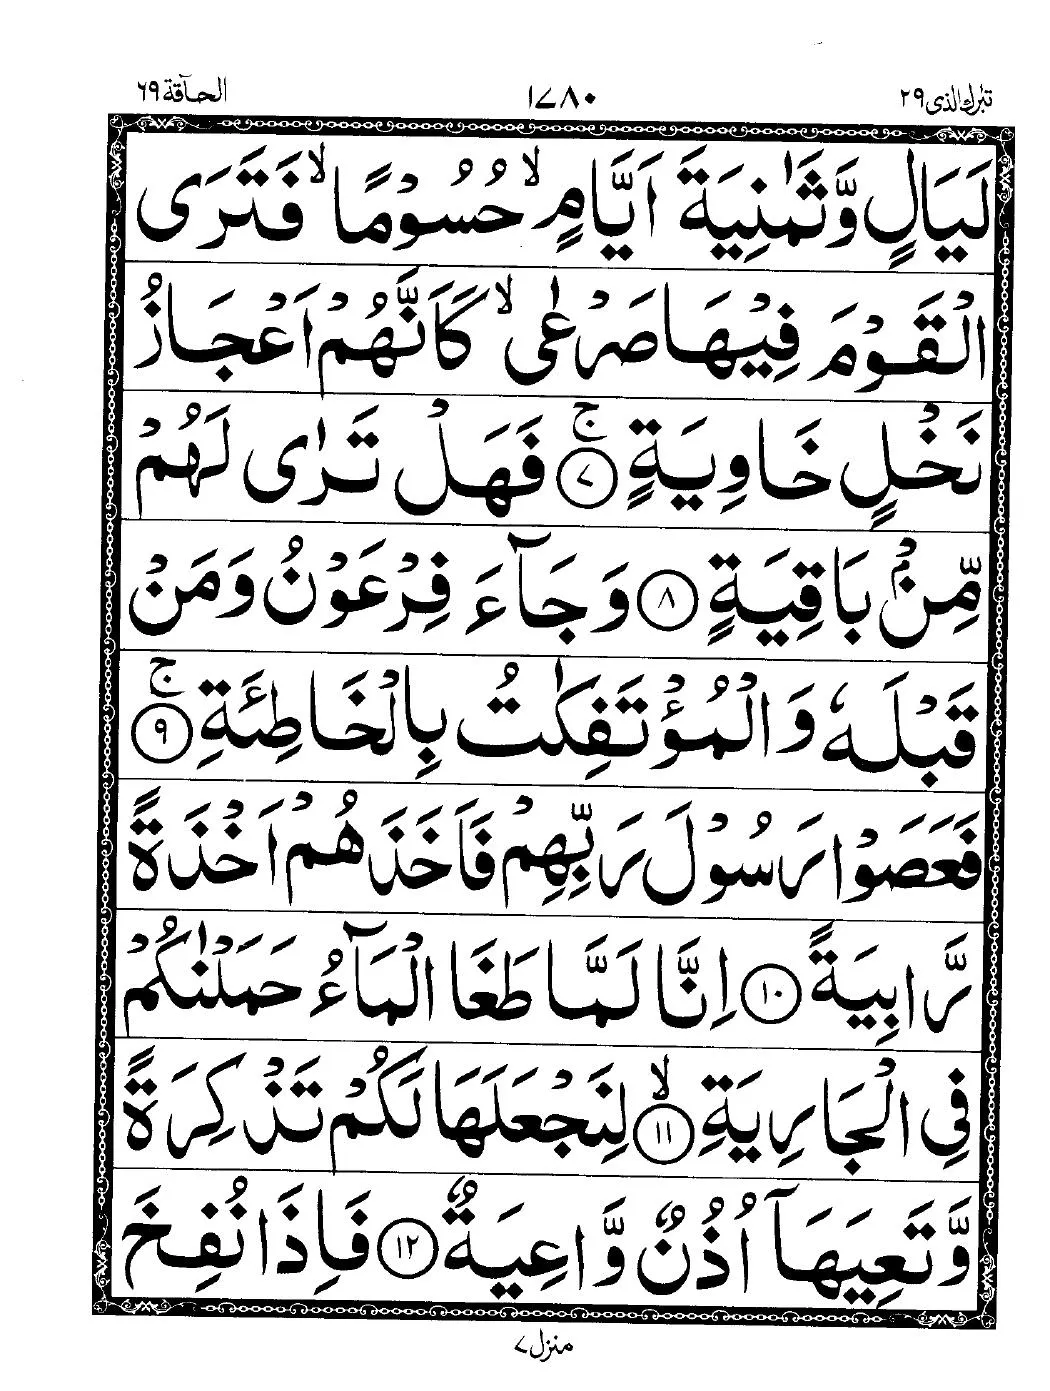 تبٰرك الذی ۲۹
۱۷۸۰
الحآقة ۶۹
لَيَالٍ وَّثَمٰنِيَةَ اَيَّامٍ ۙ حُسُوْمًا ۙ فَتَرَى
الْقَوْمَ فِيْهَا صَرْعٰى ۙ كَاَنَّهُمْ اَعْجَازُ
نَخْلٍ خَاوِيَةٍ ۚ ﴿۷﴾ فَهَلْ تَرٰى لَهُمْ
مِّنْۢ بَاقِيَةٍ ﴿۸﴾ وَجَآءَ فِرْعَوْنُ وَمَنْ
قَبْلَهٗ وَالْمُؤْتَفِكٰتُ بِالْخَاطِئَةِ ۚ ﴿۹﴾
فَعَصَوْا رَسُوْلَ رَبِّهِمْ فَاَخَذَهُمْ اَخْذَةً
رَّابِيَةً ﴿۱۰﴾ اِنَّا لَمَّا طَغَا الْمَآءُ حَمَلْنٰكُمْ
فِى الْجَارِيَةِ ۙ ﴿۱۱﴾ لِنَجْعَلَهَا لَكُمْ تَذْكِرَةً
وَّتَعِيَهَآ اُذُنٌ وَّاعِيَةٌ ﴿۱۲﴾ فَاِذَا نُفِخَ
منزل ۷